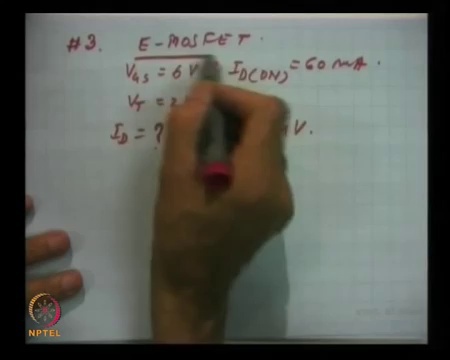 #3. E-MOSFET.
V_GS = 6 V I_D(ON) = 60 mA.
V_T =
I_D = ? V.
NPTEL